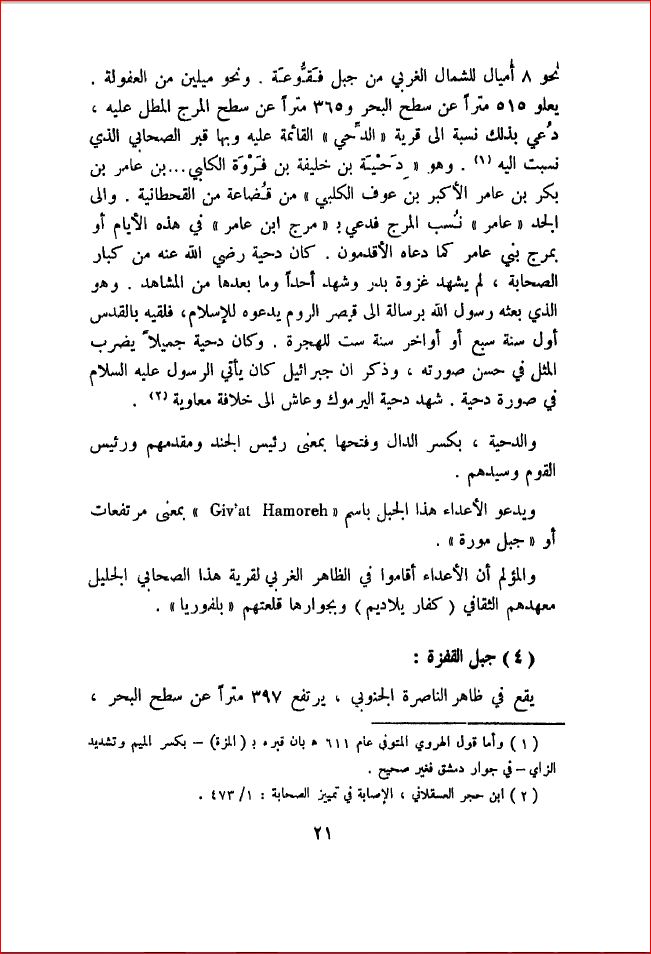 نحو ٨ أميال للشمال الغربي من جبل فَقُّوعَة . ونحو ميلين من العفولة .
يعلو ٥١٥ متراً عن سطح البحر و٣٦٥ متراً عن سطح المرج المطل عليه ،
دُعي بذلك نسبة الى قرية «الدِّحي» القائمة عليه وبها قبر الصحابي الذي
نسبت اليه (١) . وهو « دِحْيَة بن خليفة بن فَرْوَة الكلبي...بن عامر بن
بكر بن عامر الأكبر بن عوف الكلبي » من قُضاعة من القحطانية . والى
الجد « عامر » نُسب المرج فدعي بـ « مرج ابن عامر » في هذه الأيام أو
بمرج بني عامر كما دعاه الأقدمون . كان دحية رضي الله عنه من كبار
الصحابة ، لم يشهد غزوة بدر وشهد أحداً وما بعدها من المشاهد . وهو
الذي بعثه رسول الله برسالة الى قيصر الروم يدعوه للإسلام، فلقيه بالقدس
أول سنة سبع أو أواخر سنة ست للهجرة . وكان دحية جميلاً يضرب
المثل في حسن صورته ، وذكر ان جبرائيل كان يأتي الرسول عليه السلام
في صورة دحية . شهد دحية اليرموك وعاش الى خلافة معاوية (٢) .
والدحية ، بكسر الدال وفتحها بمعنى رئيس الجند ومقدمهم ورئيس
القوم وسيدهم .
ويدعو الأعداء هذا الجبل باسم « Giv'at Hamoreh » بمعنى مرتفعات
أو « جبل مورة » .
والمؤلم أن الأعداء أقاموا في الظاهر الغربي لقرية هذا الصحابي الجليل
معهدهم الثقافي ( كفار يلاديم ) وبجوارها قلعتهم «بلفوريا» .
( ٤ ) جبل القفزة :
يقع في ظاهر الناصرة الجنوبي ، يرتفع ٣٩٧ متراً عن سطح البحر ،
( ١ ) وأما قول الهروي المتوفى عام ٦١١ ه بان قبره بـ (المزة) – بكسر الميم وتشديد
الزاي – في جوار دمشق فغير صحيح .
( ٢ ) ابن حجر العسقلاني ، الإصابة في تمييز الصحابة : ١/ ٤٧٣ .
٢١